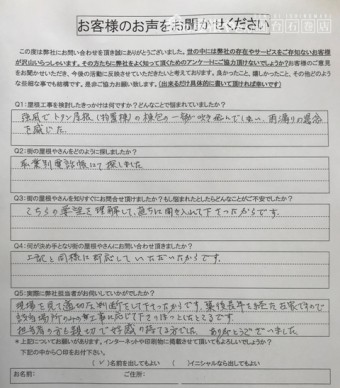 お客様のお声をお聞かせください
この度は弊社にお問い合わせを頂き誠にありがとうございました。世の中には弊社の存在やサービスをご存知ないお客様
が沢山いらっしゃいます。その方たちに弊社をよく知って頂くためのアンケートにご協力頂けないでしょうか?お客様のご意見
をお聞かせいただき、今後の活動に反映させていただきたいと考えております。良かったこと、嬉しかったこと、その他どのよう
な些細な事でも結構です。是非ご協力お願い致します。(出来るだけ具体的に書いて頂ければ幸いです)
Q1:屋根工事を検討したきっかけは何ですか?どんなことで悩まれていましたか?
強風でトタン屋根(物置様)の棟包の一部が吹き飛んでしまい、雨漏りの懸念
を感じた。
Q2:街の屋根やさんをどのように探しましたか?
卒業別電話帳にて探しました
Q3:街の屋根やさんを知りすぐにお問合せ頂けましたか?もし悩まれたとしたらどんなことがご不安でしたか?
こちらの要望を理解して、直ちに聞き入れて下さったからです。
Q4:何が決め手となり街の屋根やさんにお問い合わせ頂きましたか?
上記と同様に対応していただいたからです。
Q5:実際に弊社担当者がお伺いしていかがでしたか?
現場を見て適切な判断をして下さったからです。築後長年を経た在家ですので
該当場所のみの工事に応じて下さってほっとしたところです。
担当者の方も親切で好感の持てる方でした。ありがとうございました。
*上記についてお願いがあります。インターネットや印刷物に掲載させて頂いてもよろしいでしょうか?
下記の中から〇印をお付け下さい。
( )名前を出してもよい ( )イニシャルなら出してもよい
お名前: ご住所: